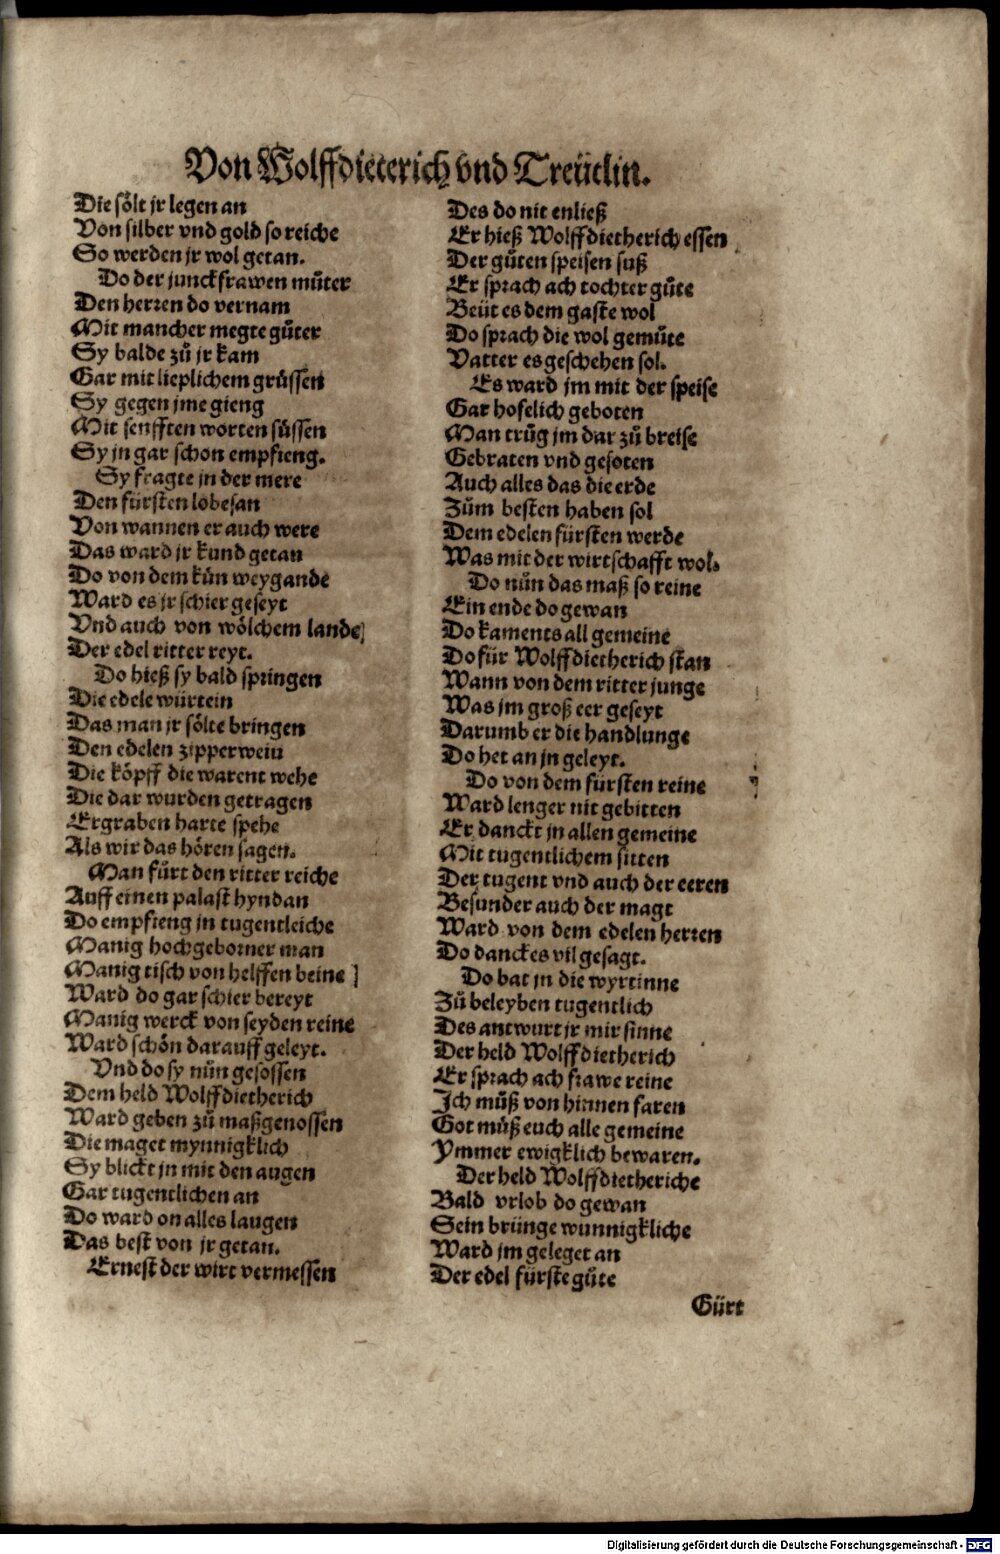 Von Wolffdieterich vnd Treütlin.
Die sölt jr legen an
Von silber vnd gold so reiche
So werden jr wol getan.
Do der junckfrawen můter
Den herren do vernam
Mit mancher megte gůter
Sy balde zů jr kam
Gar mit lieplichem grüssen
Sy gegen jme gieng
Mit senfften worten süssen
Sy jn gar schon empfieng.
Sy fragte in der mere
Den fürsten lobesan
Von wannen er auch were
Das ward jr kund getan
Do von dem kün weygande
Ward es jr schier geseyt
Vnd auch von wölchem lande
Der edel ritter reyt.
Do hieß sy bald springen
Die edele würtein
Das man jr sölte bringen
Den edelen zipperwein
Die köpff die warent wehe
Die dar wurden getragen
Ergraben harte spehe
Als wir das hören sagen.
Man fürt den ritter reiche
Auff einen palast hyndan
Do empfieng jn tugentleiche
Manig hochgeborner man
Manig tisch von helffen beine
Ward do gar schier bereyt
Manig werck von seyden reine
Ward schön darauff geleyt.
Vnd do sy nün gesossen
Dem held Wolffdietherich
Ward geben zů maßgenossen
Die maget mynnigklich
Sy blickt jn mit den augen
Gar tugentlichen an
Do ward on alles laugen
Das best von jr getan.
Ernest der wirt vermessen
Des do nit enließ
Er hieß Wolffdietherich essen
Der gůten speisen suß
Er sprach ach tochter gůte
Beüt es dem gaste wol
Do sprach die wol gemůte
Vatter es geschehen sol.
Es ward jm mit der speise
Gar hofelich geboten
Man trůg jm dar zů breise
Gebraten vnd gesoten
Auch alles das die erde
Zům besten haben sol
Dem edelen fürsten werde
Was mit der wirtschafft wol.
Do nůn das maß so reine
Ein ende do gewan
Do kaments all gemeine
Do für Wolffdietherich stan
Wann von dem ritter junge
Was jm groß eer geseyt
Darumb er die handlunge
Do het an jn geleyt.
Do von dem fürsten reine
Ward lenger nit gebitten
Er danckt jn allen gemeine
Mit tugentlichem sitten
Der tugent vnd auch der eeren
Besunder auch der magt
Ward von dem edelen herren
Do danckes vil gesagt.
Do bat jn die wyrtinne
Zů beleyben tugentlich
Des antwurt jr mir sinne
Der held Wolffdietherich
Er sprach ach frawe reine
Ich můß von hinnen faren
Got můß euch alle gemeine
Ymmer ewigklich bewaren.
Der held Wolffdietheriche
Bald vrlob do gewan
Sein brünge wunnigkliche
Ward jm geleget an
Der edel fürste gůte
Gürt
Digitalisierung gefördert durch die Deutsche Forschungsgemeinschaft - DFG